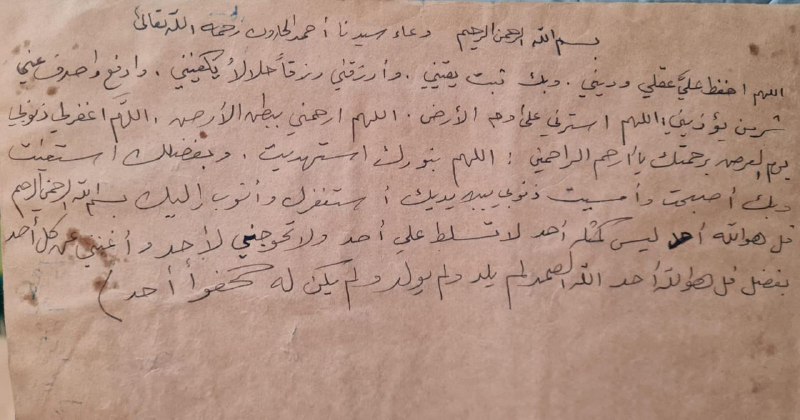 بسم الله الرحمن الرحيم دعاء سيدنا أحمد الحارون رحمه الله تعالى
اللهم احفظ عليَّ عقلي وديني . وبك ثبت يقيني . وارزقني رزقاً حلالاً يكفيني . وادفع واصرف عني
شر من يؤذيني . اللهم استرني على وجه الأرض . اللهم ارحمني ببطن الأرض . اللهم اغفر لي ذنوبي
يوم العرض برحمتك يا أرحم الراحمين : اللهم بنورك استهديت . وبفضلك استعنت
وبك أصبحت وأمسيت ذنوبي بين يديك أستغفرك وأتوب إليك بسم الله الرحمن الرحيم
قل هو الله أحد ليس كمثله أحد لا تسلط علي أحد ولا تحوجني لأحد وأغنني عن كل أحد
بفضل قل هو الله أحد الله الصمد لم يلد ولم يولد ولم يكن له كفواً أحد )